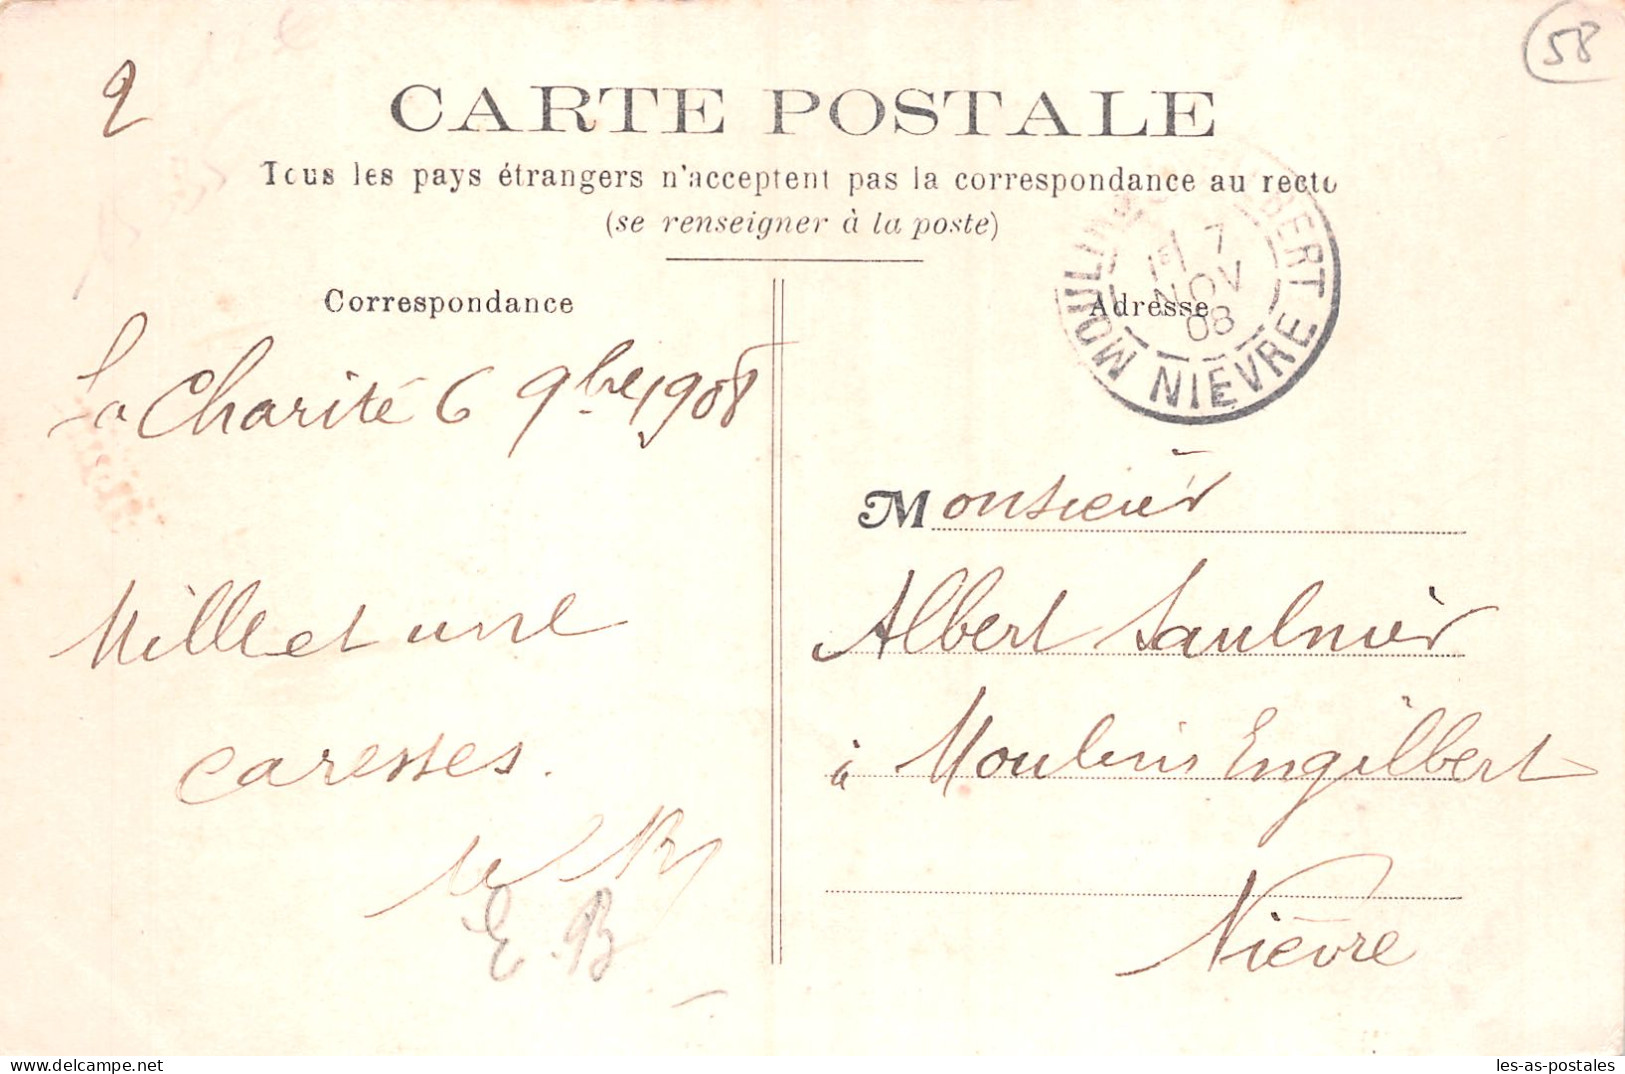 58
2
CARTE POSTALE
Tous les pays étrangers n'acceptent pas la correspondance au recto
(se renseigner à la poste)
MOULINS ENGILBERT
7
NOV
08
NIEVRE
Correspondance
Adresse
La Charité 6 9bre 1908
Mille et une
caresses.
E. B.
Monsieur
Albert Saulnier
à Moulins Engilbert
Nièvre
les-as-postales